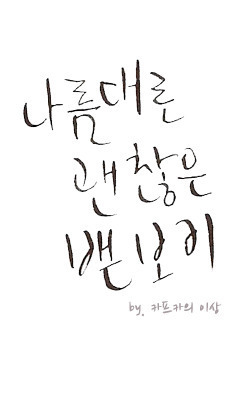 나름대로
괜찮은
by. 카프카의 이상